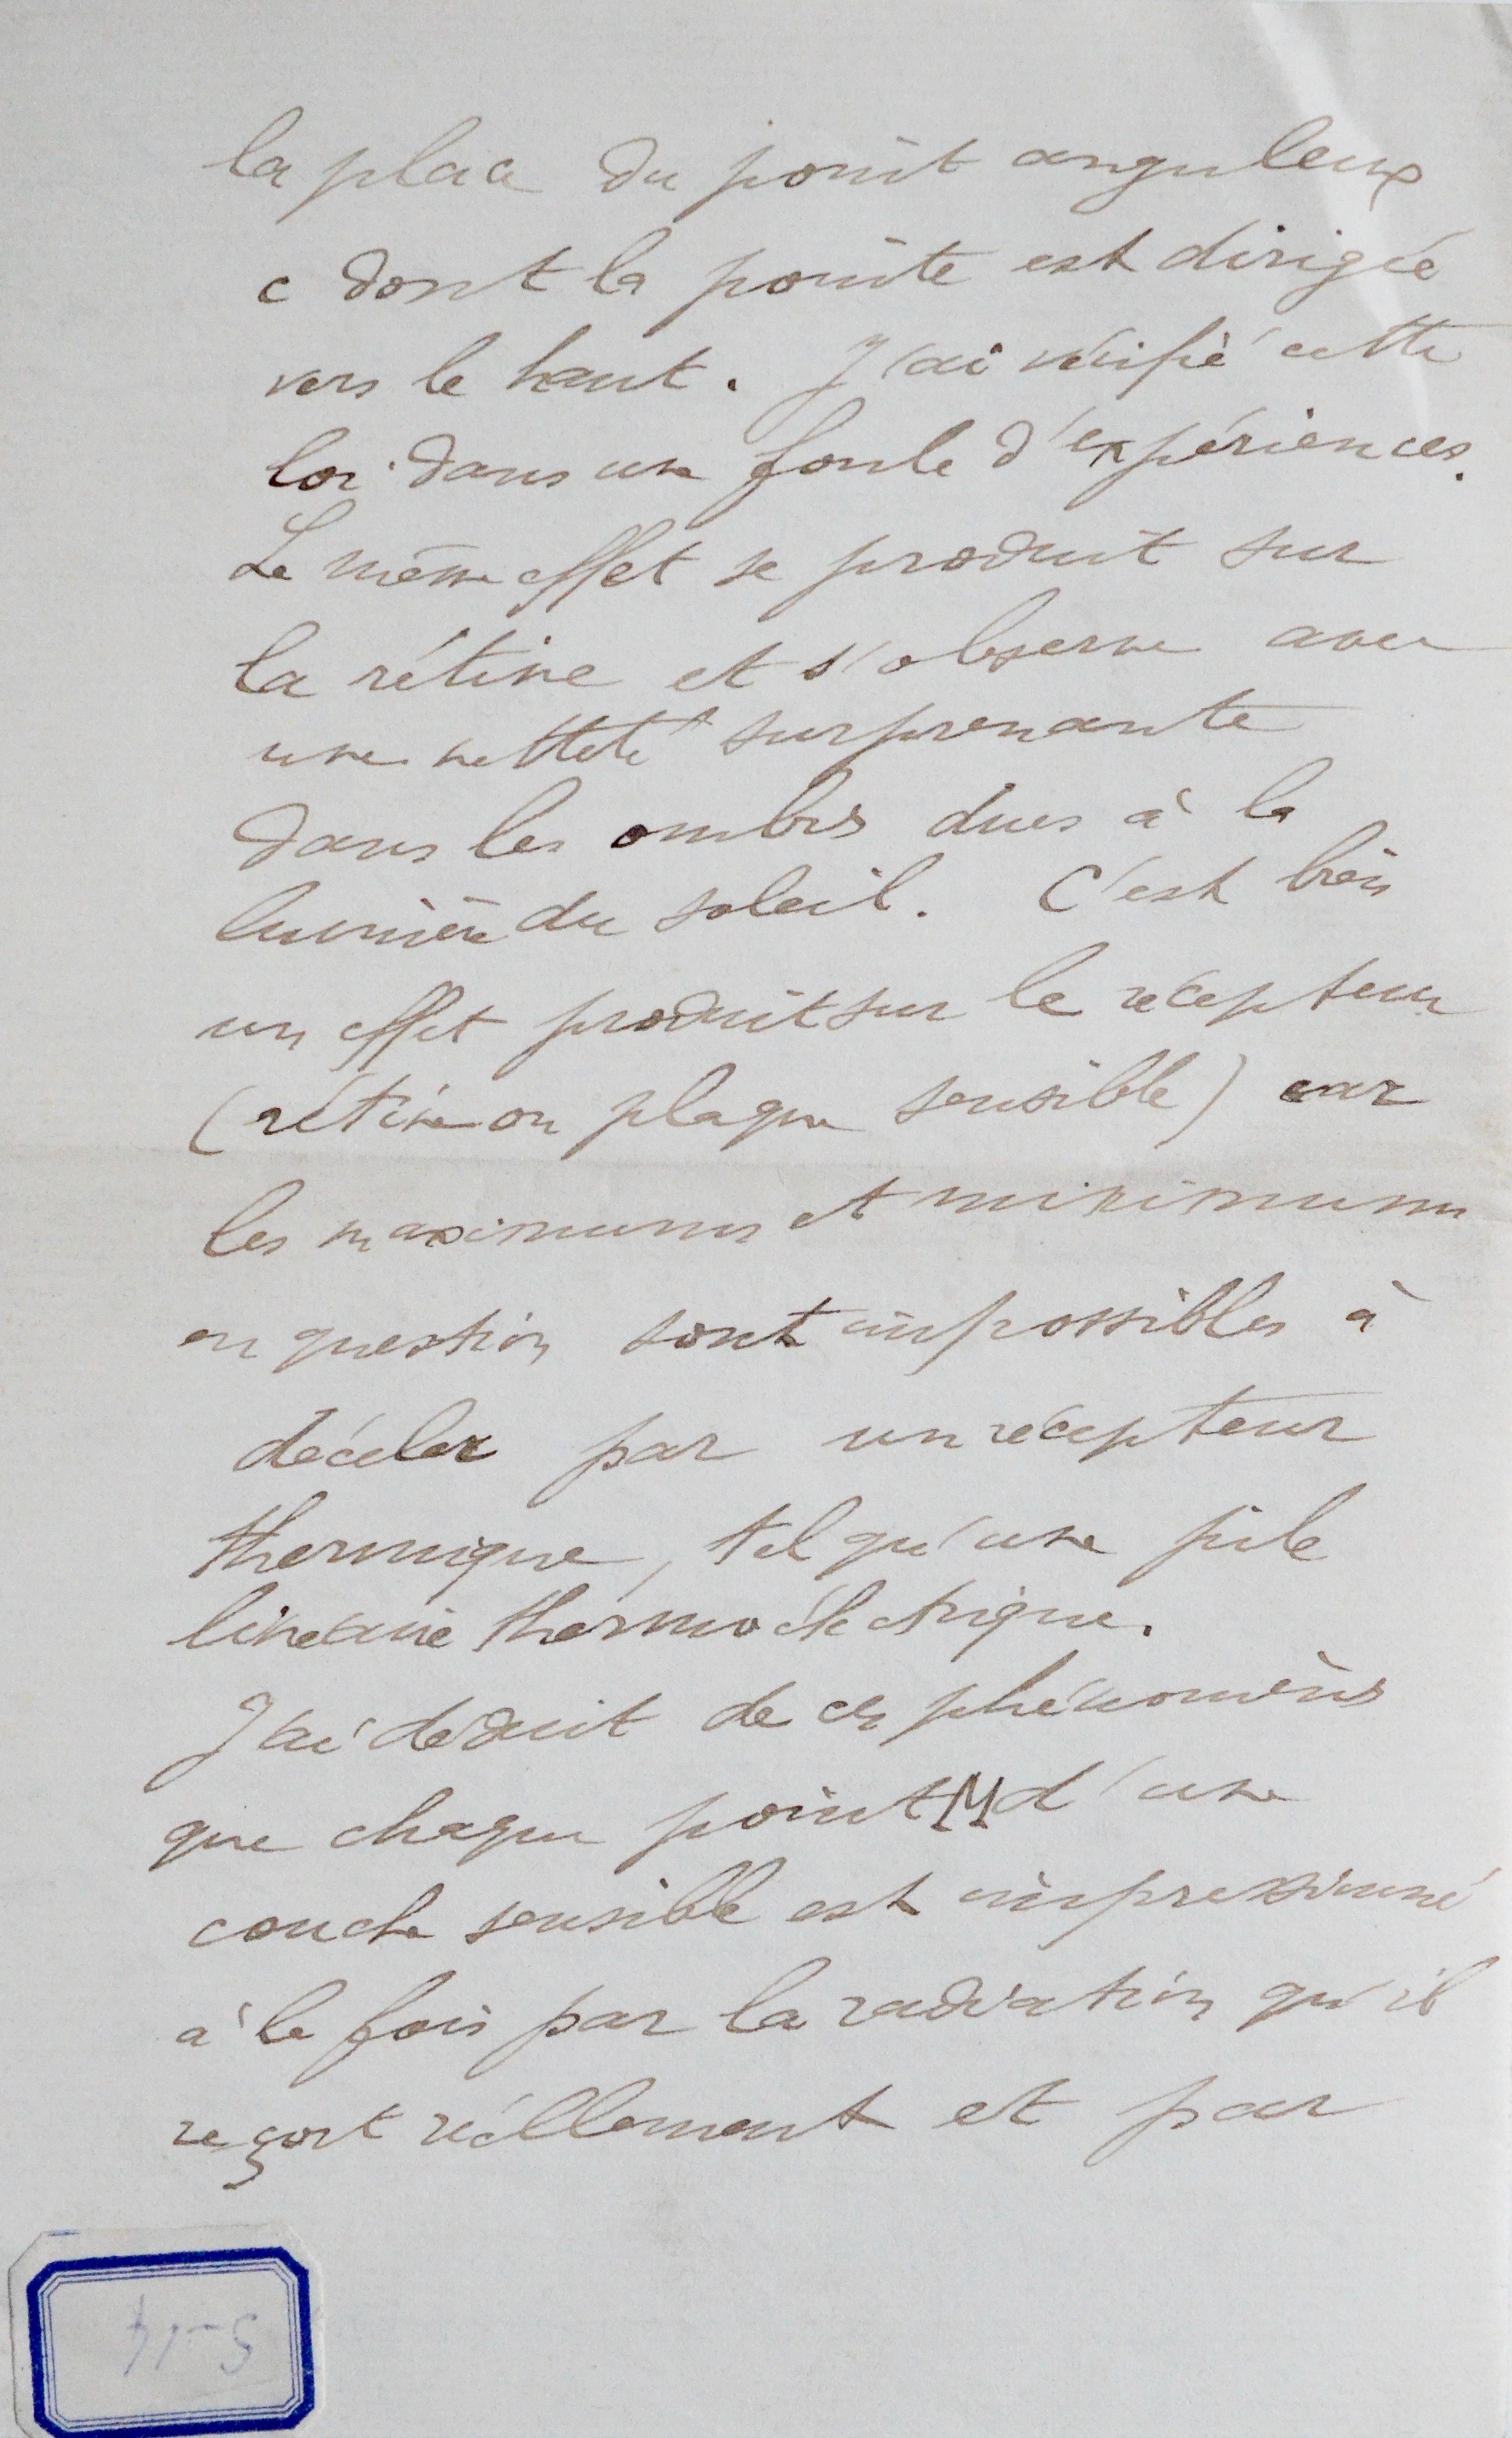 la place du point anguleux
c dont la pointe est dirigée
vers le haut. J'ai vérifié cette
loi dans une foule d'expériences.
Le même effet se produit sur
la rétine et s'observe avec
une netteté surprenante
dans les ombres dues à la
lumière du soleil. C'est bien
un effet produit sur le récepteur
(rétine ou plaque sensible) car
les maximums et minimums
en question sont impossibles à
déceler par un récepteur
thermique, tel qu'une pile
linéaire thermoélectrique.
J'ai déduit de ces phénomènes
que chaque point M d'une
couche sensible est impressionné
à la fois par la radiation qu'il
reçoit réellement et par
5-14